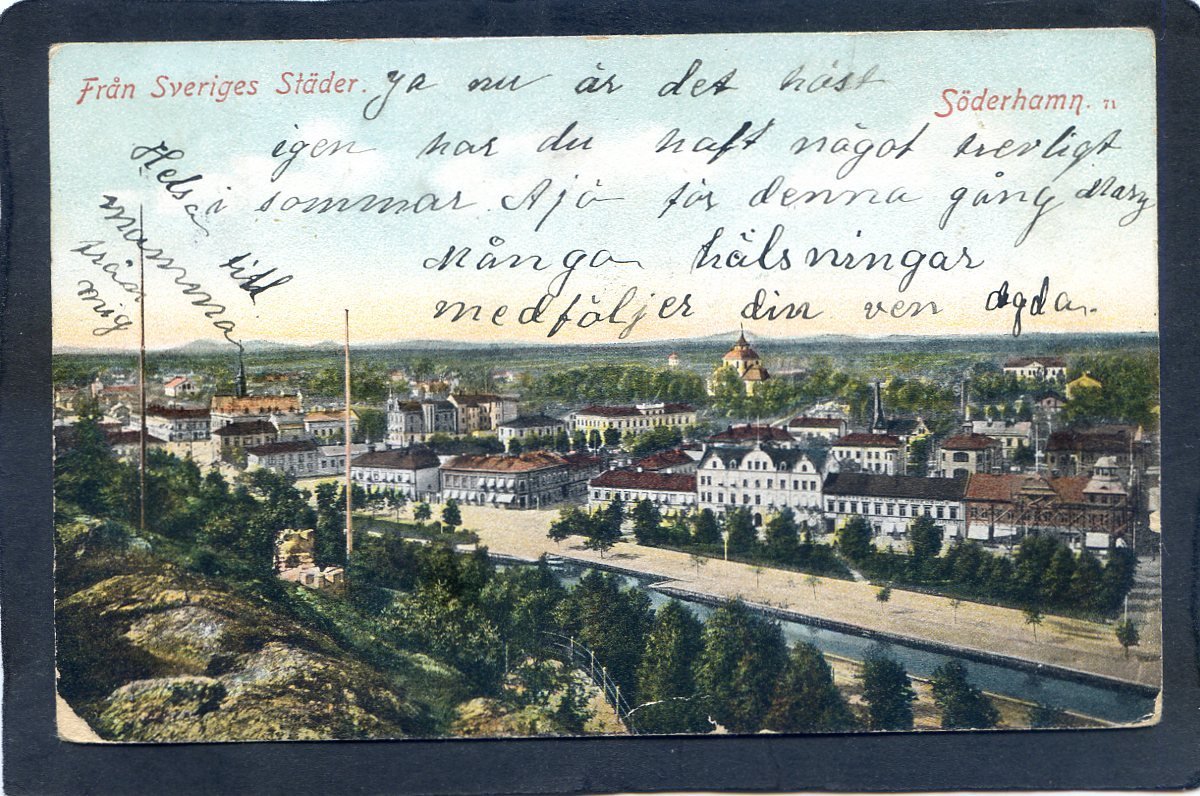 Från Sveriges Städer.
Söderhamn. 71
Ja nu är det höst
igen har du haft något trevligt
i sommar Ajö för denna gång Mary
Många hälsningar
medföljer din ven Agda.
Helsa till
mamma
från
mig